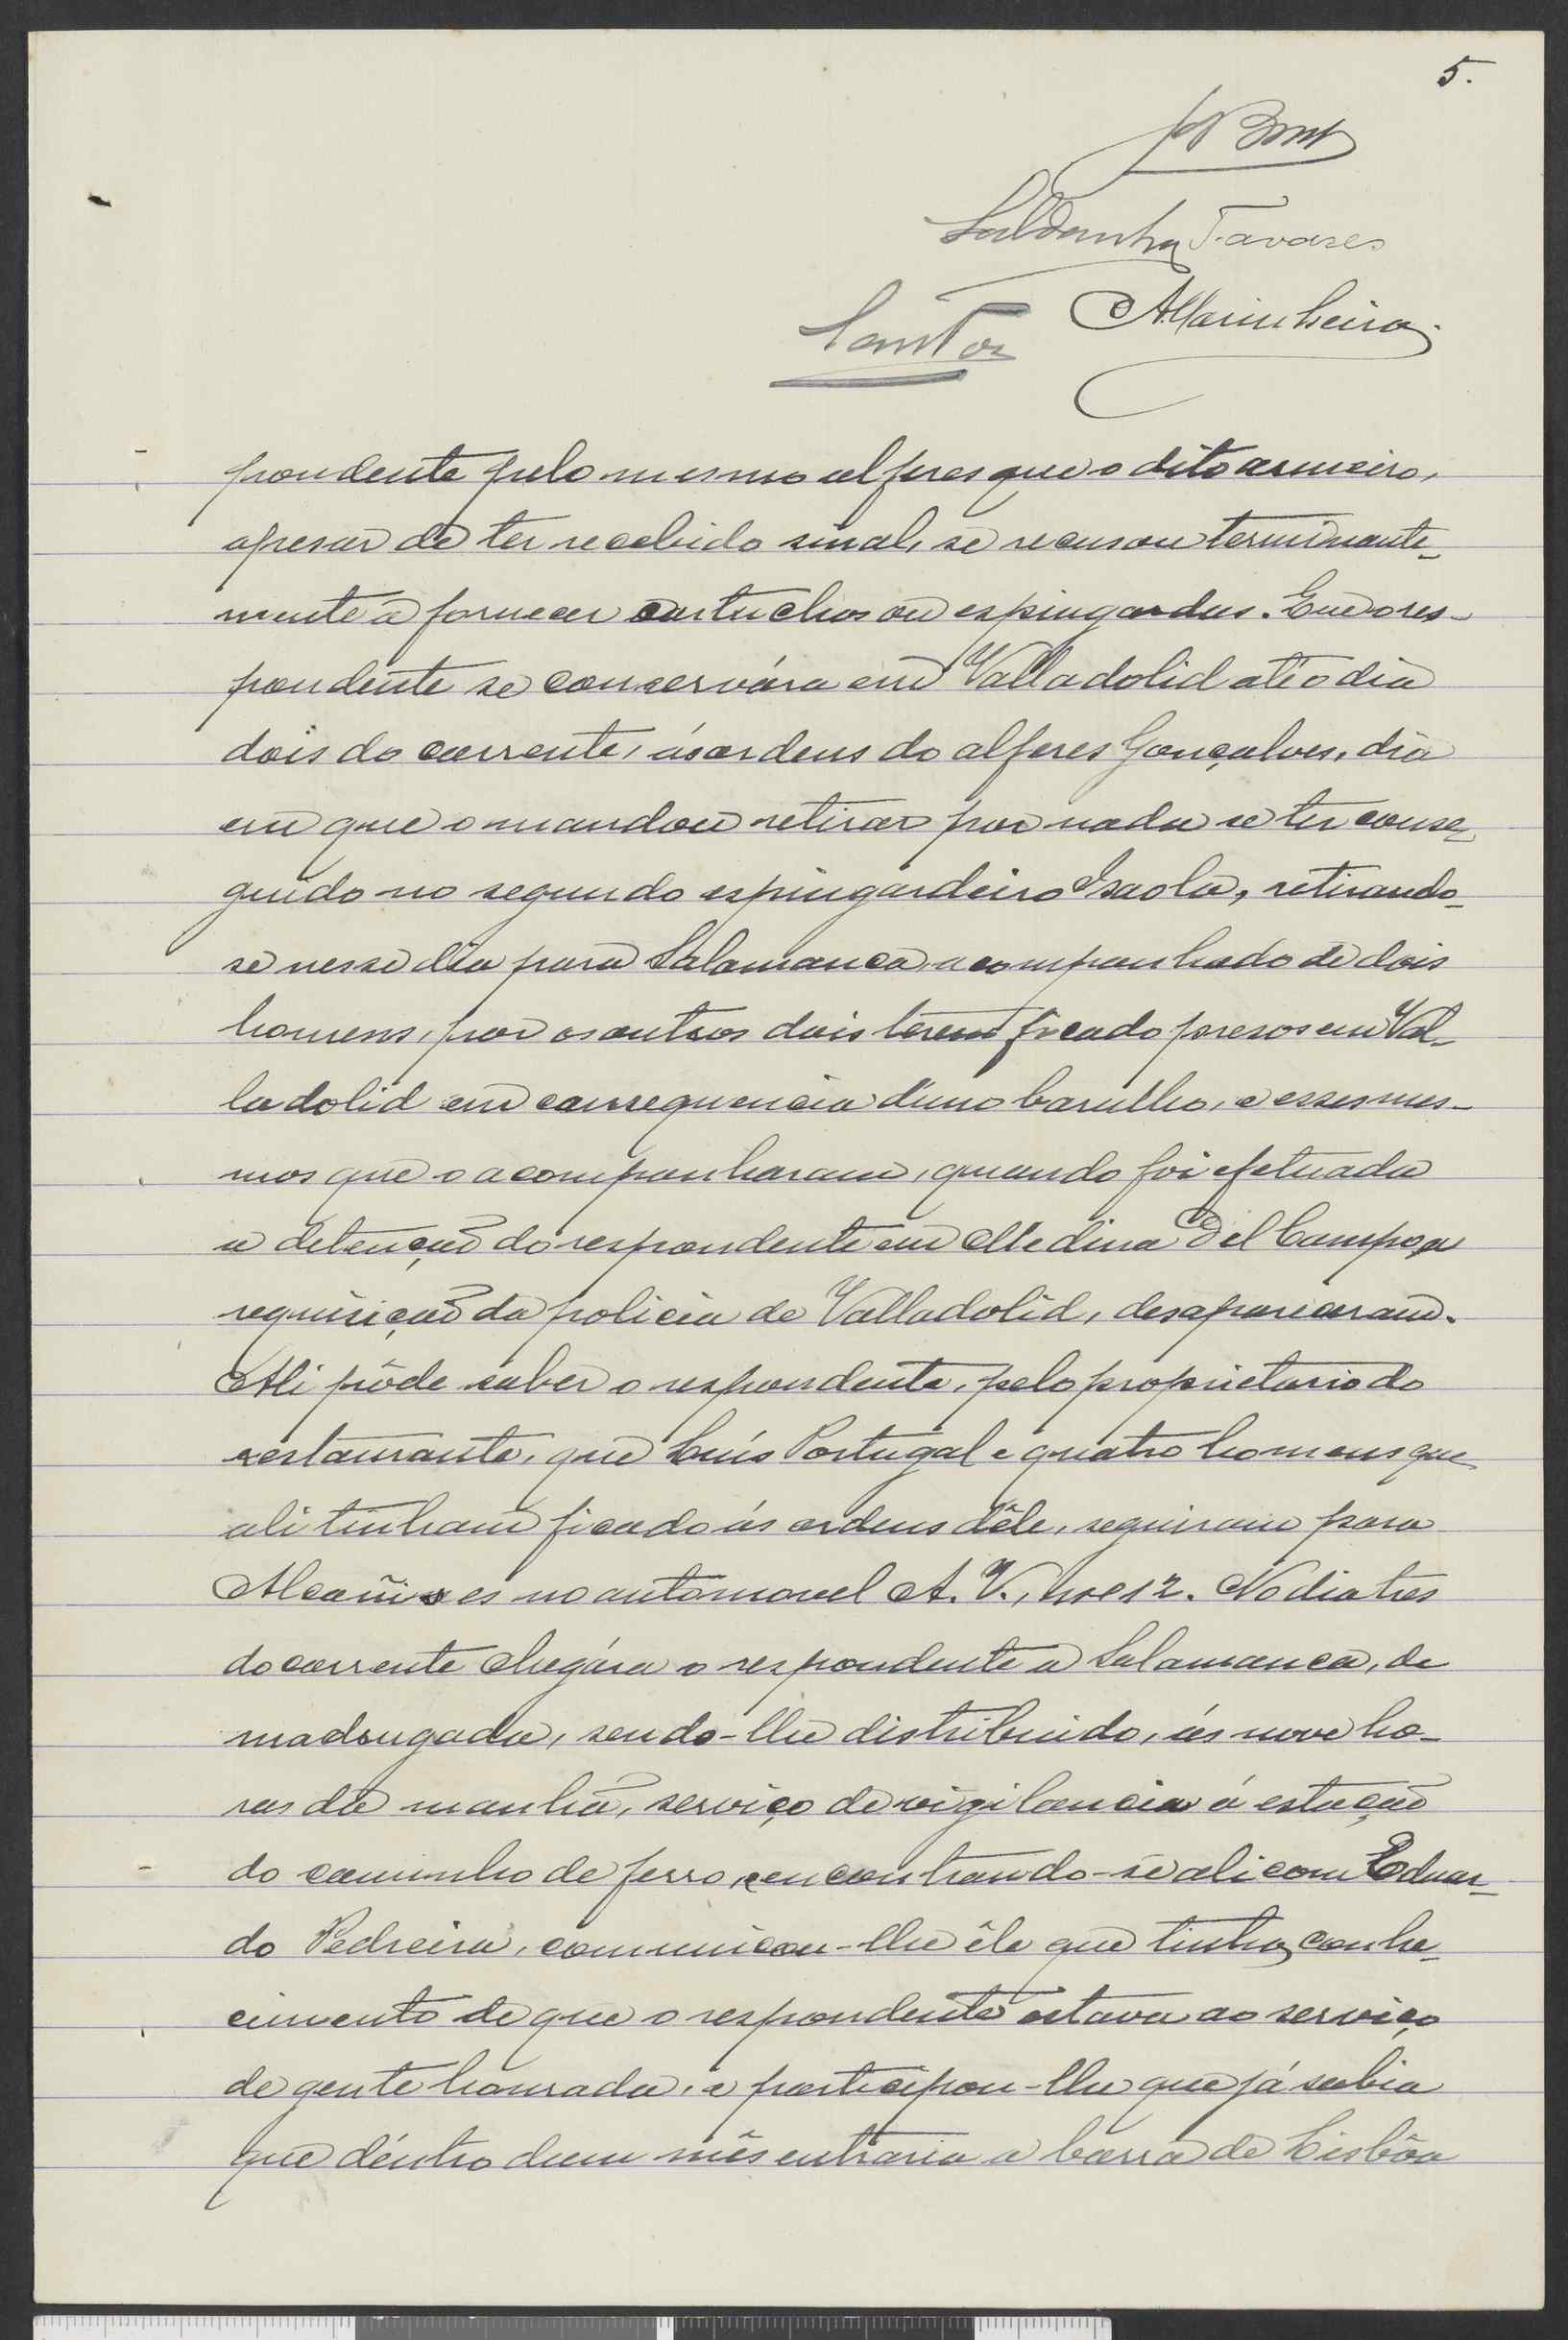 5.
Saldanha Tavares
Santos AMarinheiro
pondente pelo mesmo alferes que o dito armeiro,
apesar de ter recebido sinal, se recusou terminante-
mente a fornecer cartuchos ou espingardas. Que o res-
pondente se conservára em Valladolid até o dia
dois do corrente, ás ordens do alferes Gonçalves, dia
em que o mandou retirar por nada se ter conse-
guido no segundo espingardeiro Isaola, retirando-
se nesse dia para Salamanca, acompanhado de dois
homens, por os outros dois terem ficado presos em Val-
ladolid em consequencia dum barulho, e esses mes-
mos que o acompanharam, quando foi efetuada
a detenção do respondente em Medina del Campo, a
requisição da policia de Valladolid, desapareceram.
Ali pôde saber o respondente, pelo proprietario do
restaurante, que Luís Portugal e quatro homens que
ali tinham ficado ás ordens dêle, seguiram para
Alcañises no automovel A. V., 12. No dia tres
do corrente chegára o respondente a Salamanca, de
madrugada, sendo-lhe distribuido, ás nove ho-
ras da manhã, serviço de vigilancia á estação
do caminho de ferro, encontrando-se ali com Eduar-
do Pedreira, comunicou-lhe êle que tinha conhe-
cimento de que o respondente estava ao serviço
de gente honrada, e participou-lhe que já sabia
que déntro dum mês entraria a barra de Lisbôa